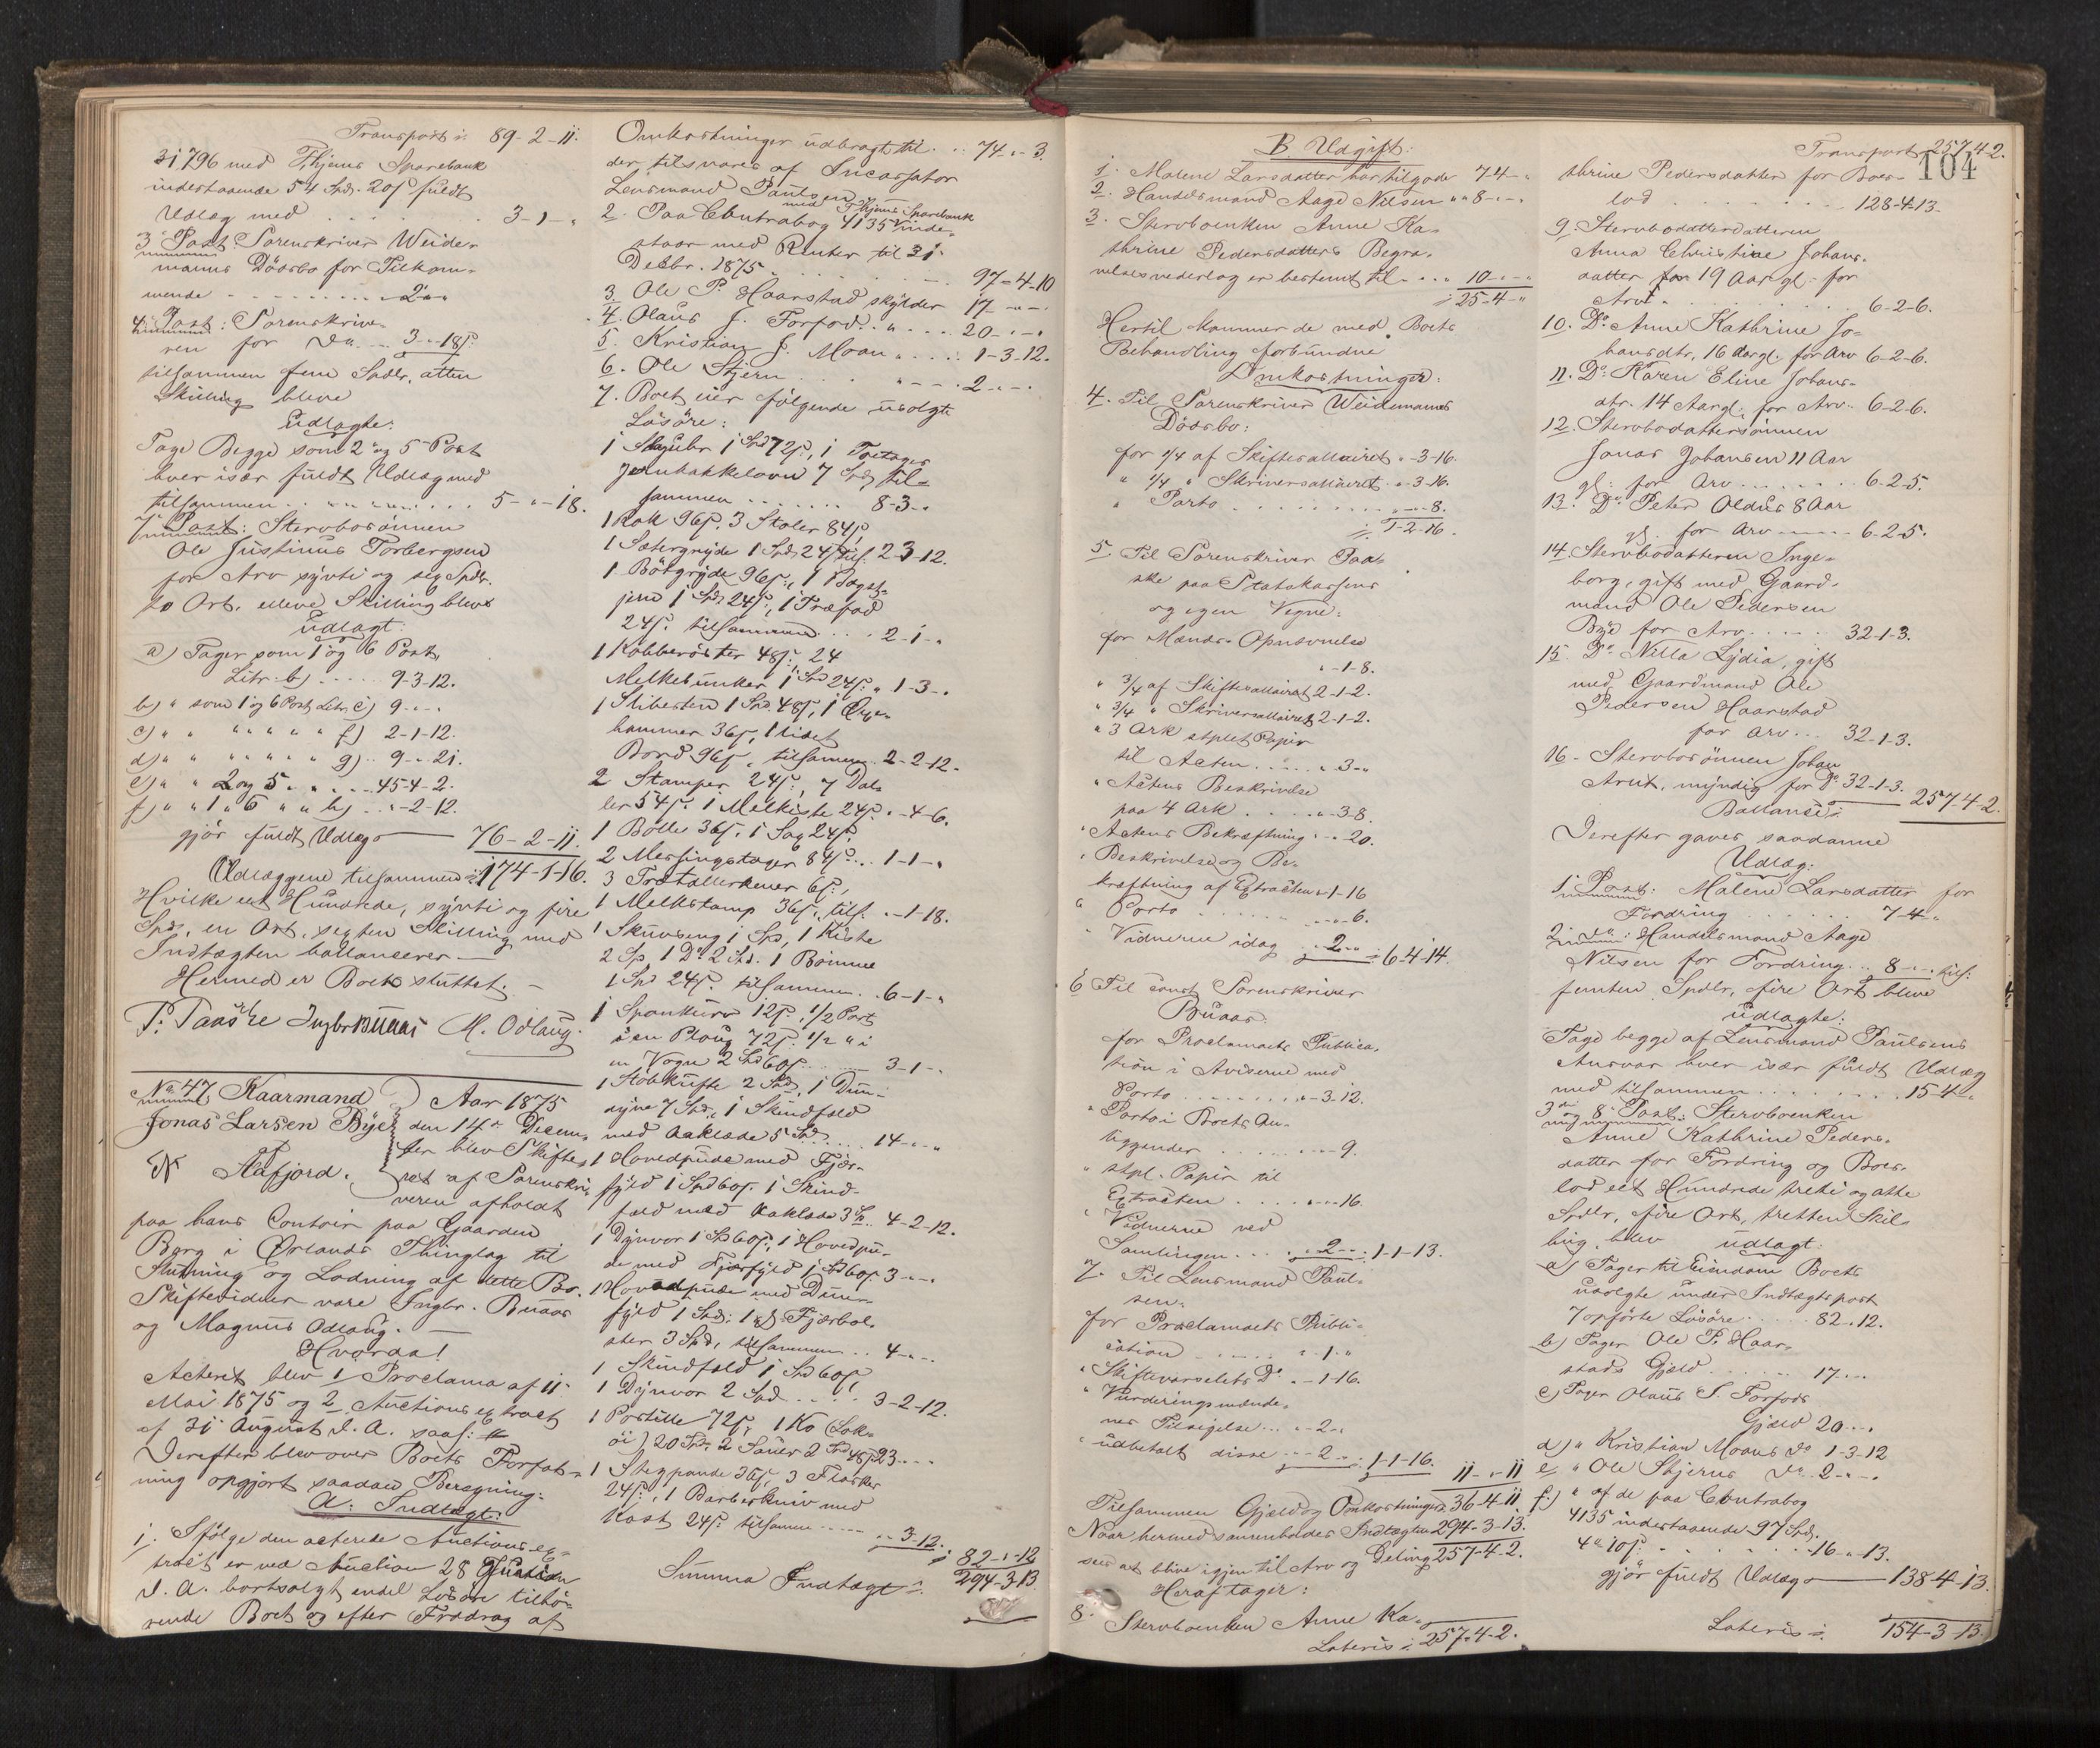 Transport ⁒ 89-2-11.
31796 med Thjems Sparebank
indestaaende 54 Spd. 20 ß fuldt
Udlæg med . . . . . . 3-1-"
3 Post. Sorenskriver Weide-
manns Dödsbo for Tilkom-
mende - - - - - - - 2 " "
4 Post: Sorenskrive-
ren for Do .. 3 " 18 ß
tilsammen fem Spdlr, atten
Skilling bleve
Udlagte:
Tage Begge som 2 og 5 Post
hver især fuldt Udlæg med
tilsammen . . . . . . . 5-"-18.
7 Post: Stervbosönnen
Ole Justinus Torbergsen
for Arv syvti og sex Spdlr.
to Ort, elleve Skilling blev
Udlagt:
a) Tager som 1 og 6 Post,
Litr. b) . . . . 9-3-12.
b) " som 1 og 6 Post Litr. c) 9-"-"
c) " " " " " " f) 2-1-12.
d) " " " " " " g) .. 9-"-21.
e) " " 2 og 5 . " . . . 45-4-2.
f) " " 1 " 6 " " h) .. "-2-12.
gjör fuldt Udlæg — 76-2-11.
Udlæggene tilsammen ⁒ 174-1-16.
Hvilke eet Hundrede, syvti og fire
Spd, en Ort, sexten Skilling med
Indtægten ballancerer —
Hermed er Boets sluttet. —
P. Paaske Ingbr Buaas M. Odlaug.
No 47. Kaarmand
Jonas Larsen Bye
Stafjord.
Aar 1875
den 14de Decem-
ber blev Skifte-
ret af Sorenskri-
veren afholdt
paa hans Contoir paa Gaarden
Berg i Ørlands Thinglag til
Slutning og Lodning af dette Bo.
Skiftevidner vare Ingbr. Buaas
og Magnus Odlaug. —
Hvorda!
Acteret blev 1 Proclama af 11
Mai 1875 og 2 Auctionsextract
af 31 August d. A. saal:
Derefter blev over Boets Forfat-
ning opgjort saadan Beregning:
A: Indtægt:
1. Ifølge den acterede Auctionsex-
tract er ved Auction 28
d. A. bortsolgt endel Lösöre tilhö-
rende Boet og efter Fradrag af
Omkostninger udbragt til . . 74-"-3.
der tilsvares af Incassator
Lensmand Paulsen
2. Paa Contrabog 4135 med Thjems Sparebank inde-
staar med Renter til 31
Decbr. 1875 . . . . . . . 97-4-10
3. Ole P. Haarstad skylder 17-"-"
4. Olaus J. Forfod . . " . . . 20-"-"
5. Kristian J. Moan " . . . 1-3-12.
6. Ole Stjern . . . . " - - - 2-"-"
7. Boet eier følgende usolgte
Lösöre:
1 Stueuhr 1 Spd 72 ß, 1 Toetages
Jernkakkelovn 7 Spd til-
sammen . . . . . . . 8-3-"
1 Rok 96 ß, 3 Stoler 84 ß
1 Sætergryde 1 Spd 24 ß tils. 2 3-12.
1 Bötgryde 96 ß, 1 Bagst-
jern 1 Spd 24 ß, 1 Træfad
24 ß. tilsammen . . . 2-1-"
1 Kobberöster 48 ß, 24
Melkebunker 1 Spd 24 ß. " 1-3-"
1 Slibesten 1 Spd. 48 ß, 1 Øxe-
hammer 36 ß, 1 lidet
Bord 96 ß, tilsammen 2-2-12.
2 Stamper 24 ß, 7 Dal-
ler 54 ß. 1 Melkiste 24 ß. "-4-6.
1 Bölle 36 ß, 1 Sag 24 ß.
2 Messingstager 84 ß . . . 1-1-"
3 Trætallerkener 6 ß,
1 Melkstamp 36 ß, tils. "-1-18.
1 Skuvseng 1 Spd, 1 Kiste
2 Sp 1 Do 2 Spd. 1 Bömme
1 Spd 24 ß. tilsammen . . 6-1-"
1 Sponkurv 12 ß, 1/2 Part
i en Ploug 72 ß. 1/2 " i
en Vogn 2 Spd 60 ß . . . 3-1-"
1 Stobkufte 2 Spd, 1 Dun-
dyne 7 Spd, 1 Skindfeld
med Aaklæde 5 Spd . . . 14-"-"
1 Hovedpude med Fjær-
fyld 1 Spd 60 ß. 1 Skind-
feld med Aaklæde 3 Sp .. 4-2-12.
1 Dynvor 1 Sp 60 ß, 1 Hovedpu-
de med Fjærfyld 1 Sp 60 ß. 3-"-"
1 Hovedpude med Dun-
fyld 1 Spd; 1 Fjærbol-
ster 3 Spd, tilsammen .. 4-"-"
1 Skindfeld 1 Spd 60 ß
1 Dynvor 2 Spd . . . . 3-2-12.
1 Postille 72 ß, 1 Ko (Lok-
öi) 20 Spd. 2 Sauer 2 Spd 48 ß 23-"-"
1 Stegpande 36 ß, 3 Flasker
24 ß., 1 Barberkniv med
Kost 24 ß. tilsamm - - - - "-3-12.
⁒ 82-"-12
Summa Indtægt ⁒ 294-3-13.
104
B. Udgift:
1. Malene Larsdatter har tilgode 7-4-"
2. Handelsmand Aage Nilsen " " 8-"-"
3. Stervboenken Anne Ka-
thrine Pedersdatters Begra-
velsesvederlag er bestemt til . . . 10-"-"
⁒ 25-4-"
Hertil kommer de med Boets
Behandling forbundne
Omkostninger:
4. Til Sorenskriver Weidemanns
Dödsbo:
for 1/4 af Skiftesallairet "-3-16.
" 1/4 " Skriversallairet "-3-16.
" Porto . . . . . . . . . "-"-8.
⁒ 1-2-16.
5. Til Sorenskriver Paa-
ske paa Statskassens
og egen Vegne:
for Mænds Opnævnelse
"-1-8.
" 3/4 af Skiftesallairet 2-1-2.
" 3/4 " Skriversallairet 2-1-2.
" 3 Ark stplet Papir
til Acten . . . . . " 3-"
" Actens Beskrivelse
paa 4 Ark . . . . "-3-8.
" Actens Bekræftning "-"-20.
" Beskrivelse og Be-
kræftning af Extracten "-1-16
" Porto . . . . . . "-"-6.
" Vidnerne idag "-2-" ⁒ 6-4-14.
6 Til const Sorenskriver
Buaas:
for Proclamaets Publica-
tion i Aviserne med
Porto . . . . . . . . "-3-12.
" Porto i Boets An-
liggender . . . . . . "-"-9.
" stpl. Papir til
Extracten . . . . "-"-16.
" Vidnerne ved
Samlingen . . . "-2-" ⁒ 1-1-13.
7. Til Lensmand Paul-
sen:
for Proclamaets Publi-
cation . . . . . "-1-"
" Skiftevarselets Do . "-1-16.
" Vurderingsmænde-
nes Tilsigelse . . "-2-"
" udbetalt disse "-2-" ⁒ 1-1-16.
11-"-11
Tilsammen Gjæld og Omkostninger 36-4-11
Naar hermed sammenholdes Indtægten 294-3-13.
sees at blive igjen til Arv og Deling 257-4-2.
Heraf tager:
8. Stervboenken Anne Ka-
Lateris ⁒ 257-4-2.
Transport 257-4-2.
thrine Pedersdatter for Boes-
lod . . . . . . . 128-4-13.
9. Stervbodatterdatteren
Anna Christine Johans-
datter 19 Aar gl. for
Arv . . . . . . . . . 6-2-6.
10. Do Anne Kathrine Jo-
hansdtr, 16 Aar gl. for Arv 6-2-6.
11. Do Karen Eline Johans-
dtr. 14 Aar gl. for Arv . . 6-2-6.
12. Stervbodattersönnen
Jonas Johansen 11 Aar
gl. for Arv . . . . . . 6-2-5.
13. Do Peter Oldus 8 Aar
gl. for Arv - - - - 6-2-5.
14. Stervbodatteren Inge-
borg, gift med Gaard-
mand Ole Pedersen
Bye for Arv . . . . . 32-1-3.
15. Do Nilla Lydia, gift
med Gaardmand Ole
Pedersen Haarstad
for Arv . . . 32-1-3.
16. Stervbosönnen Johan
Arnt, myndig for Do 32-1-3.
Ballance ⁒ 257-4-2.
Derefter gaves saadanne
Udlæg:
1 Post: Malene Larsdatter for
Fordring . . . . . . 7-4-"
2 Do: Handelsmand Aage
Nilsen for Fordring . . 8-"-" tils:
femten Spdlr, fire Ort bleve
udlagte:
Tage begge af Lensmand Paulsens
Ansvar hver især fuldt Udlæg
med tilsammen . . . . . . . 15-4-"
3die og 8 Post: Stervboenken
Anne Kathrine Peders-
datter for Fordring og Boes-
lod eet Hundrede treti og otte
Spdlr, fire Ort, tretten Skil-
ling blev udlagt:
a) Tager til Eiendom Boets
usolgte under Indtægtspost
7 opförte Lösöre . . . 82 " 12.
b) Tager Ole P. Haar-
stads Gjæld . . . . . 17-"-"
c) Tager Olaus J. Forfods
Gjæld 20-"-"
d) " Kristian Moans Do 1-3-12
e " Ole Stjerns Do . . 2-"-"
f) " af de paa Contrabog
4135 indestaaende 97 Spd.
4 " 10 ß . . . . . . 16-"-13.
gjör fuldt Udlæg — 138-4-13.
Lateris ⁒ 154-3-13.